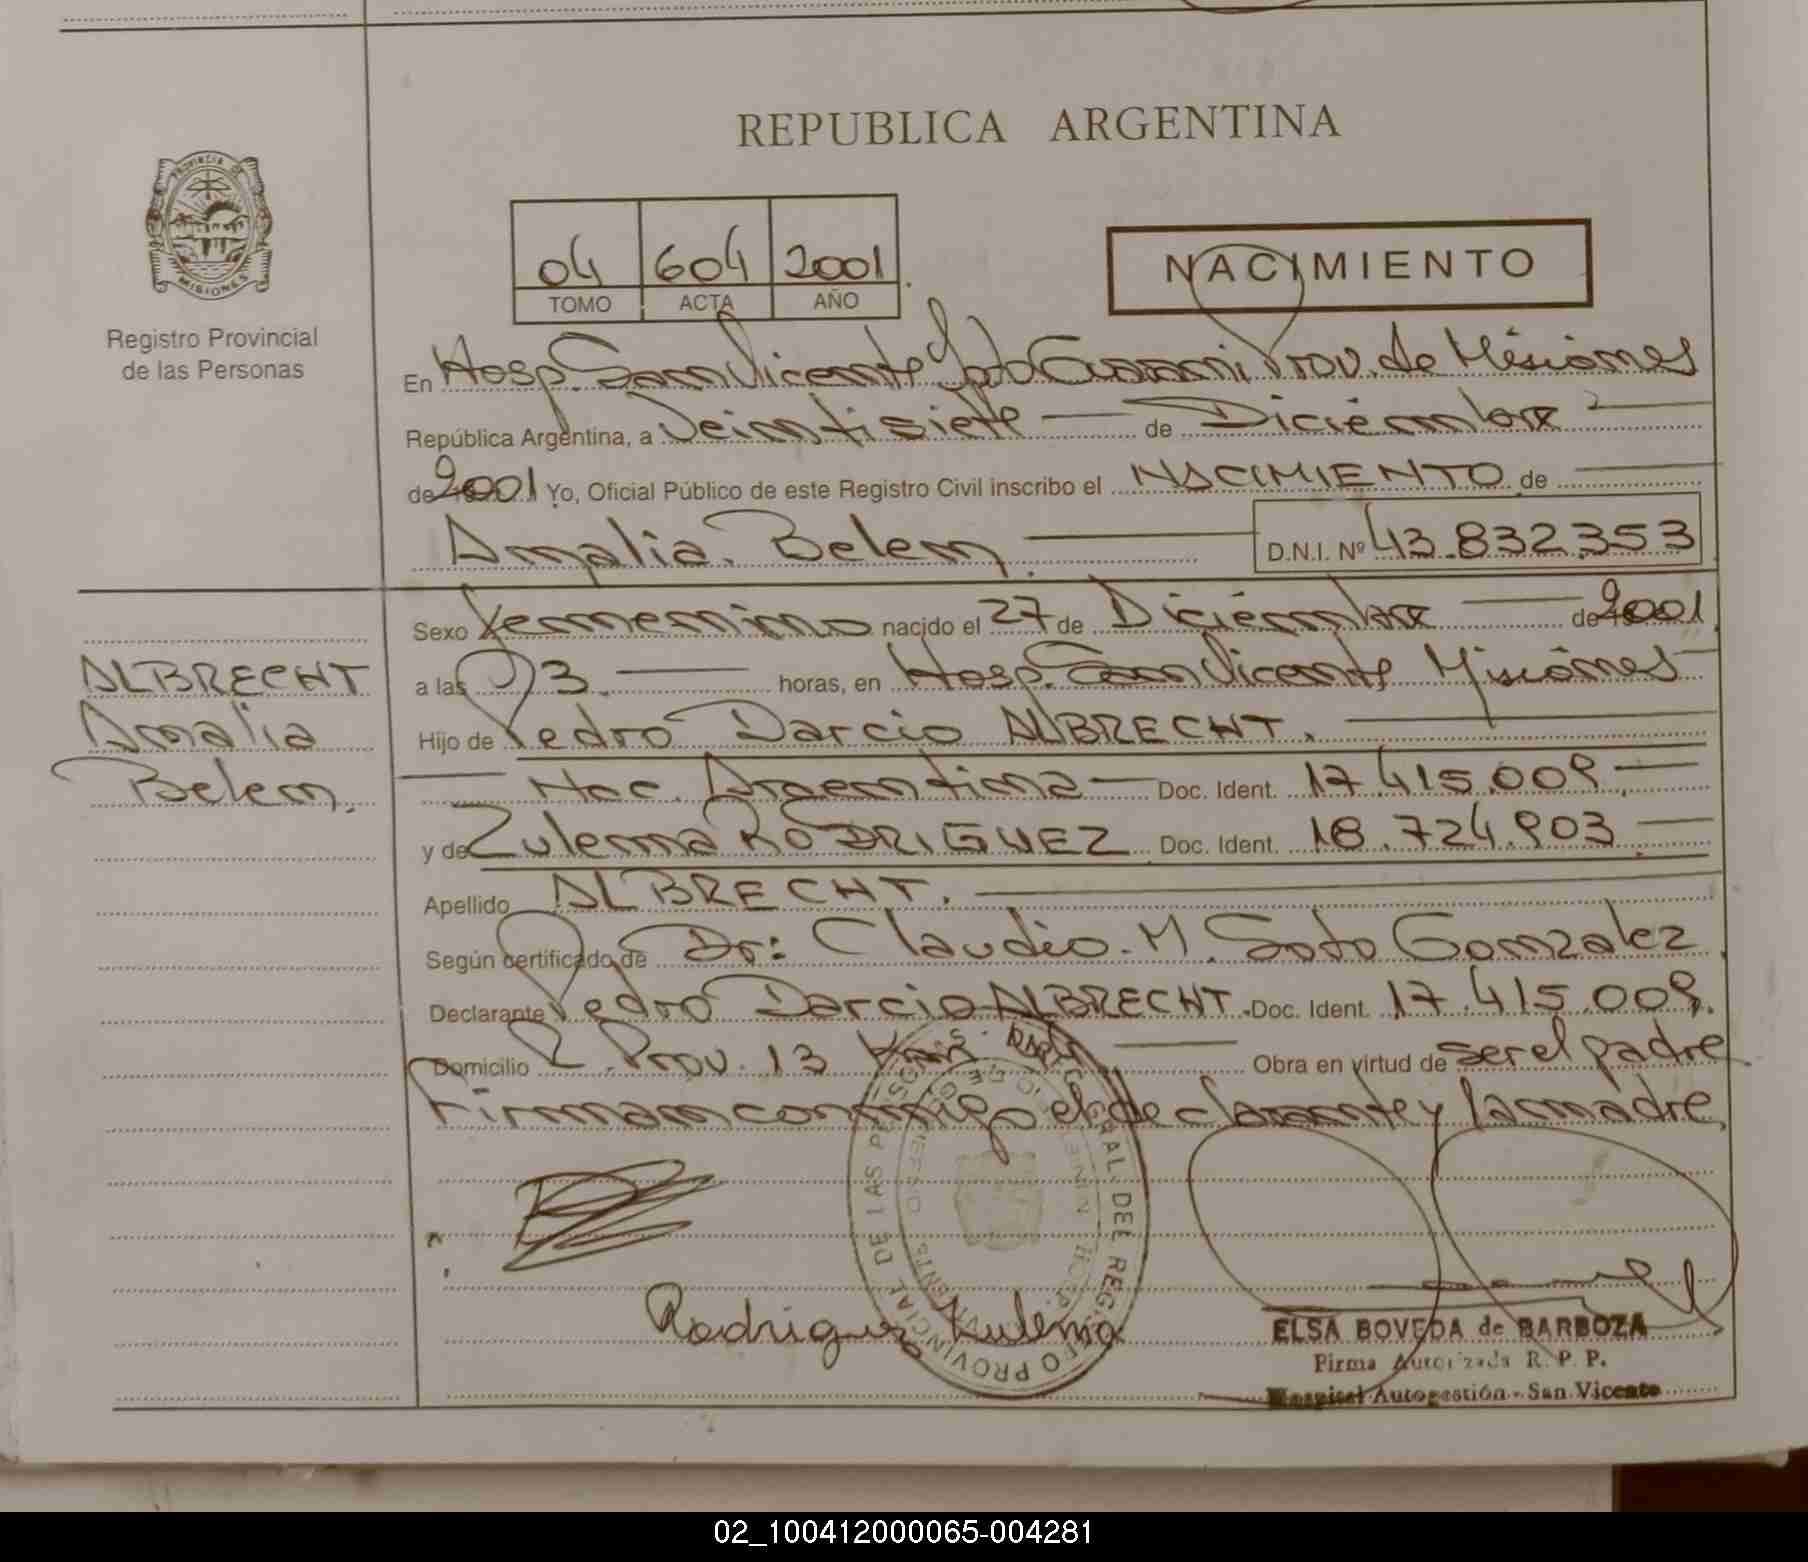 REPUBLICA ARGENTINA
PROVINCIA DE
MISIONES
Registro Provincial
de las Personas
04 604 2001
TOMO ACTA AÑO
NACIMIENTO
En Hosp. San Vicente Dpto Guarani Prov. de Misiones
República Argentina, a Veintisiete de Diciembre
de 2001 Yo, Oficial Público de este Registro Civil inscribo el NACIMIENTO de
Amalia Belem D.N.I. Nº 43.832.353
ALBRECHT
Amalia
Belem.
Sexo Femenino nacido el 27 de Diciembre de 2001
a las 3 horas, en Hosp. San Vicente Misiones
Hijo de Pedro Darcio ALBRECHT.
Nac. Argentina Doc. Ident. 17.415.009
y de Zulema RODRIGUEZ Doc. Ident. 18.724.903
Apellido ALBRECHT.
Según certificado de Dr: Claudio. M. Soto Gonzalez
Declarante Pedro Darcio ALBRECHT. Doc. Ident. 17.415.009.
Domicilio R. Prov. 13 Obra en virtud de ser el padre
Firman conmigo el declarante y la madre
REGISTRO PROVINCIAL DE LAS PERSONAS
Rodriguez Zulema
ELSA BOVEDA de BARBOZA
Firma Autorizada R. P. P.
Hospital Autogestión - San Vicente
02_100412000065-004281